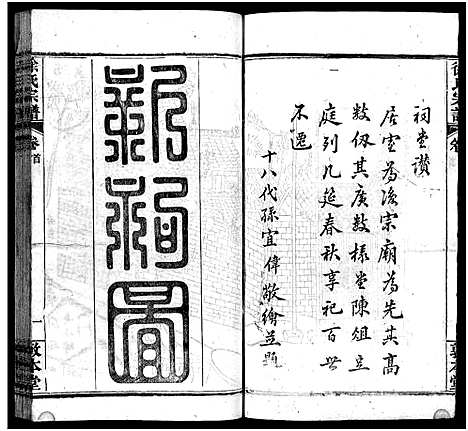 祠堂讚
居室為後宗廟為先其高
數仞其廣數椽堂陳俎立
庭列几延春秋享祀百世
不遷
十八代孫宜偉敬繪並題
新祠圖
徐氏宗譜
卷首
一
敦本堂